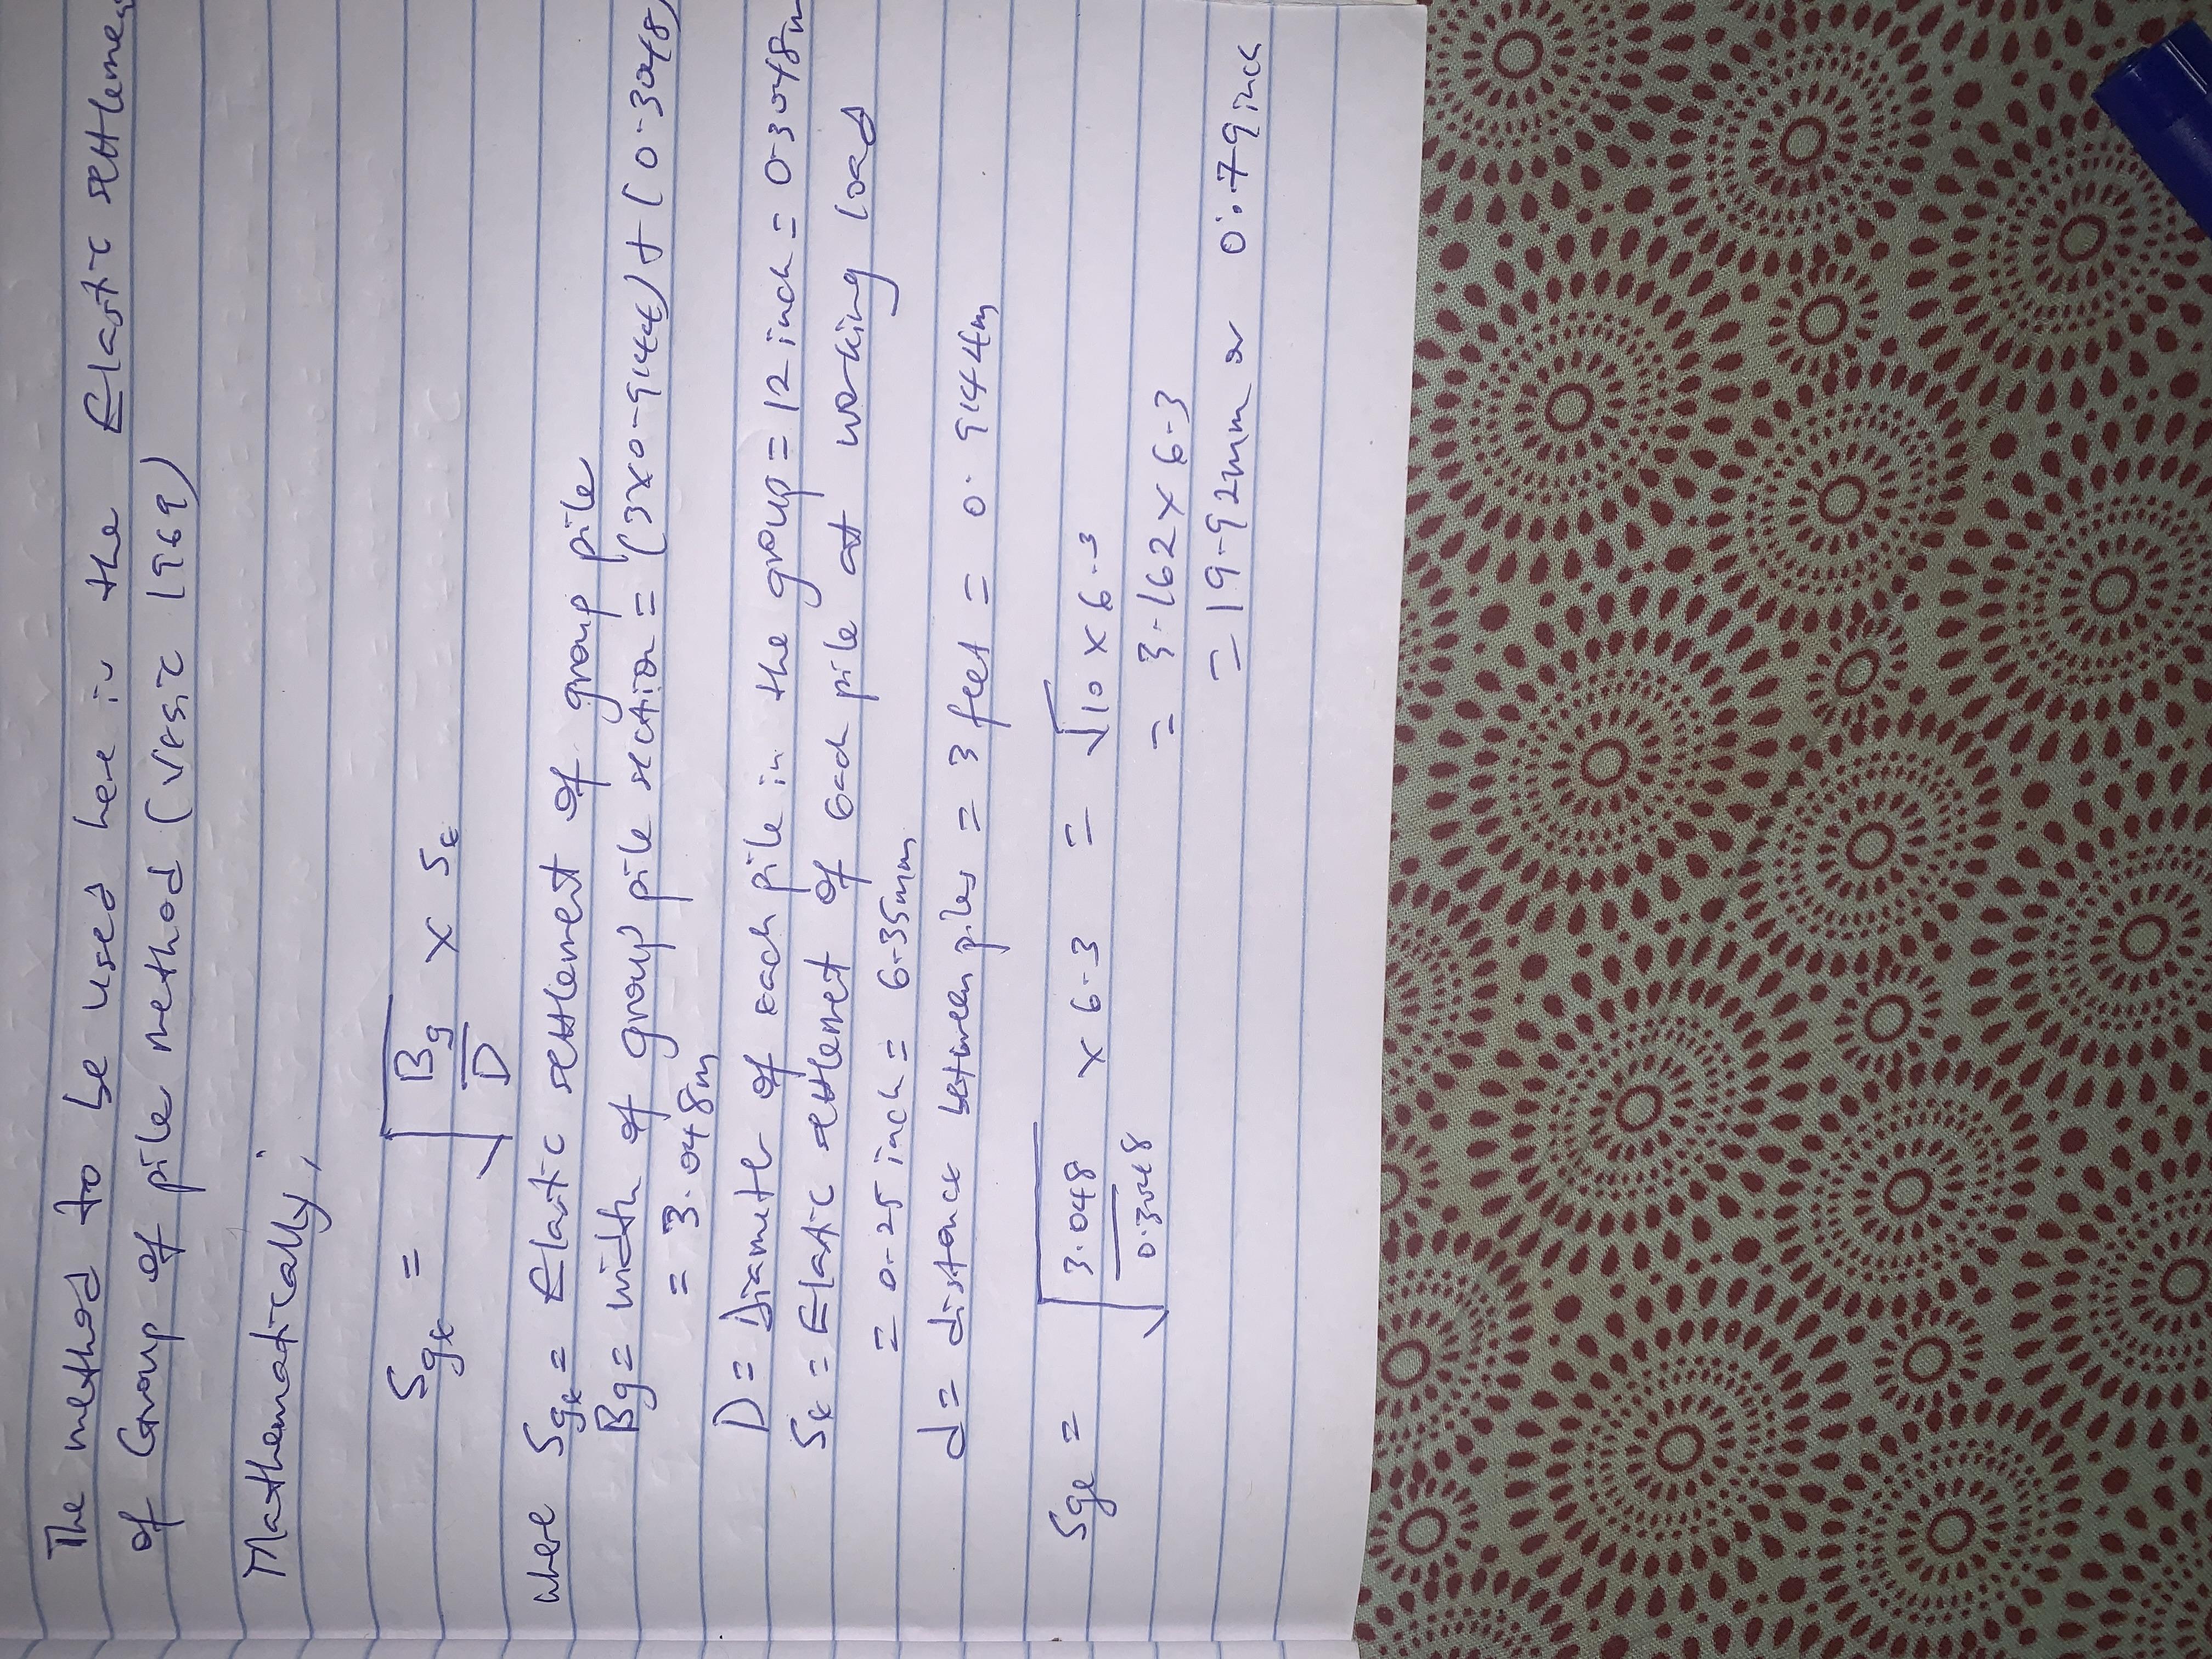 The method to be used here is the Elastic settlement
of Group of pile method (Vesic 1969)
Mathematically,
Sge = √Bg/D × Se
where Sge = Elastic settlement of group pile
Bg = width of group pile section = (3×0.9144) + (0.3048)
= 3.048m
D = Diameter of each pile in the group = 12 inch = 0.3048m
Se = Elastic settlement of each pile at working load
= 0.25 inch = 6.35mm
d = distance between piles = 3 feet = 0.9144m
Sge = √3.048/0.3048 × 6.3 = √10 × 6.3
= 3.162 × 6.3
= 19.92mm or 0.79inch